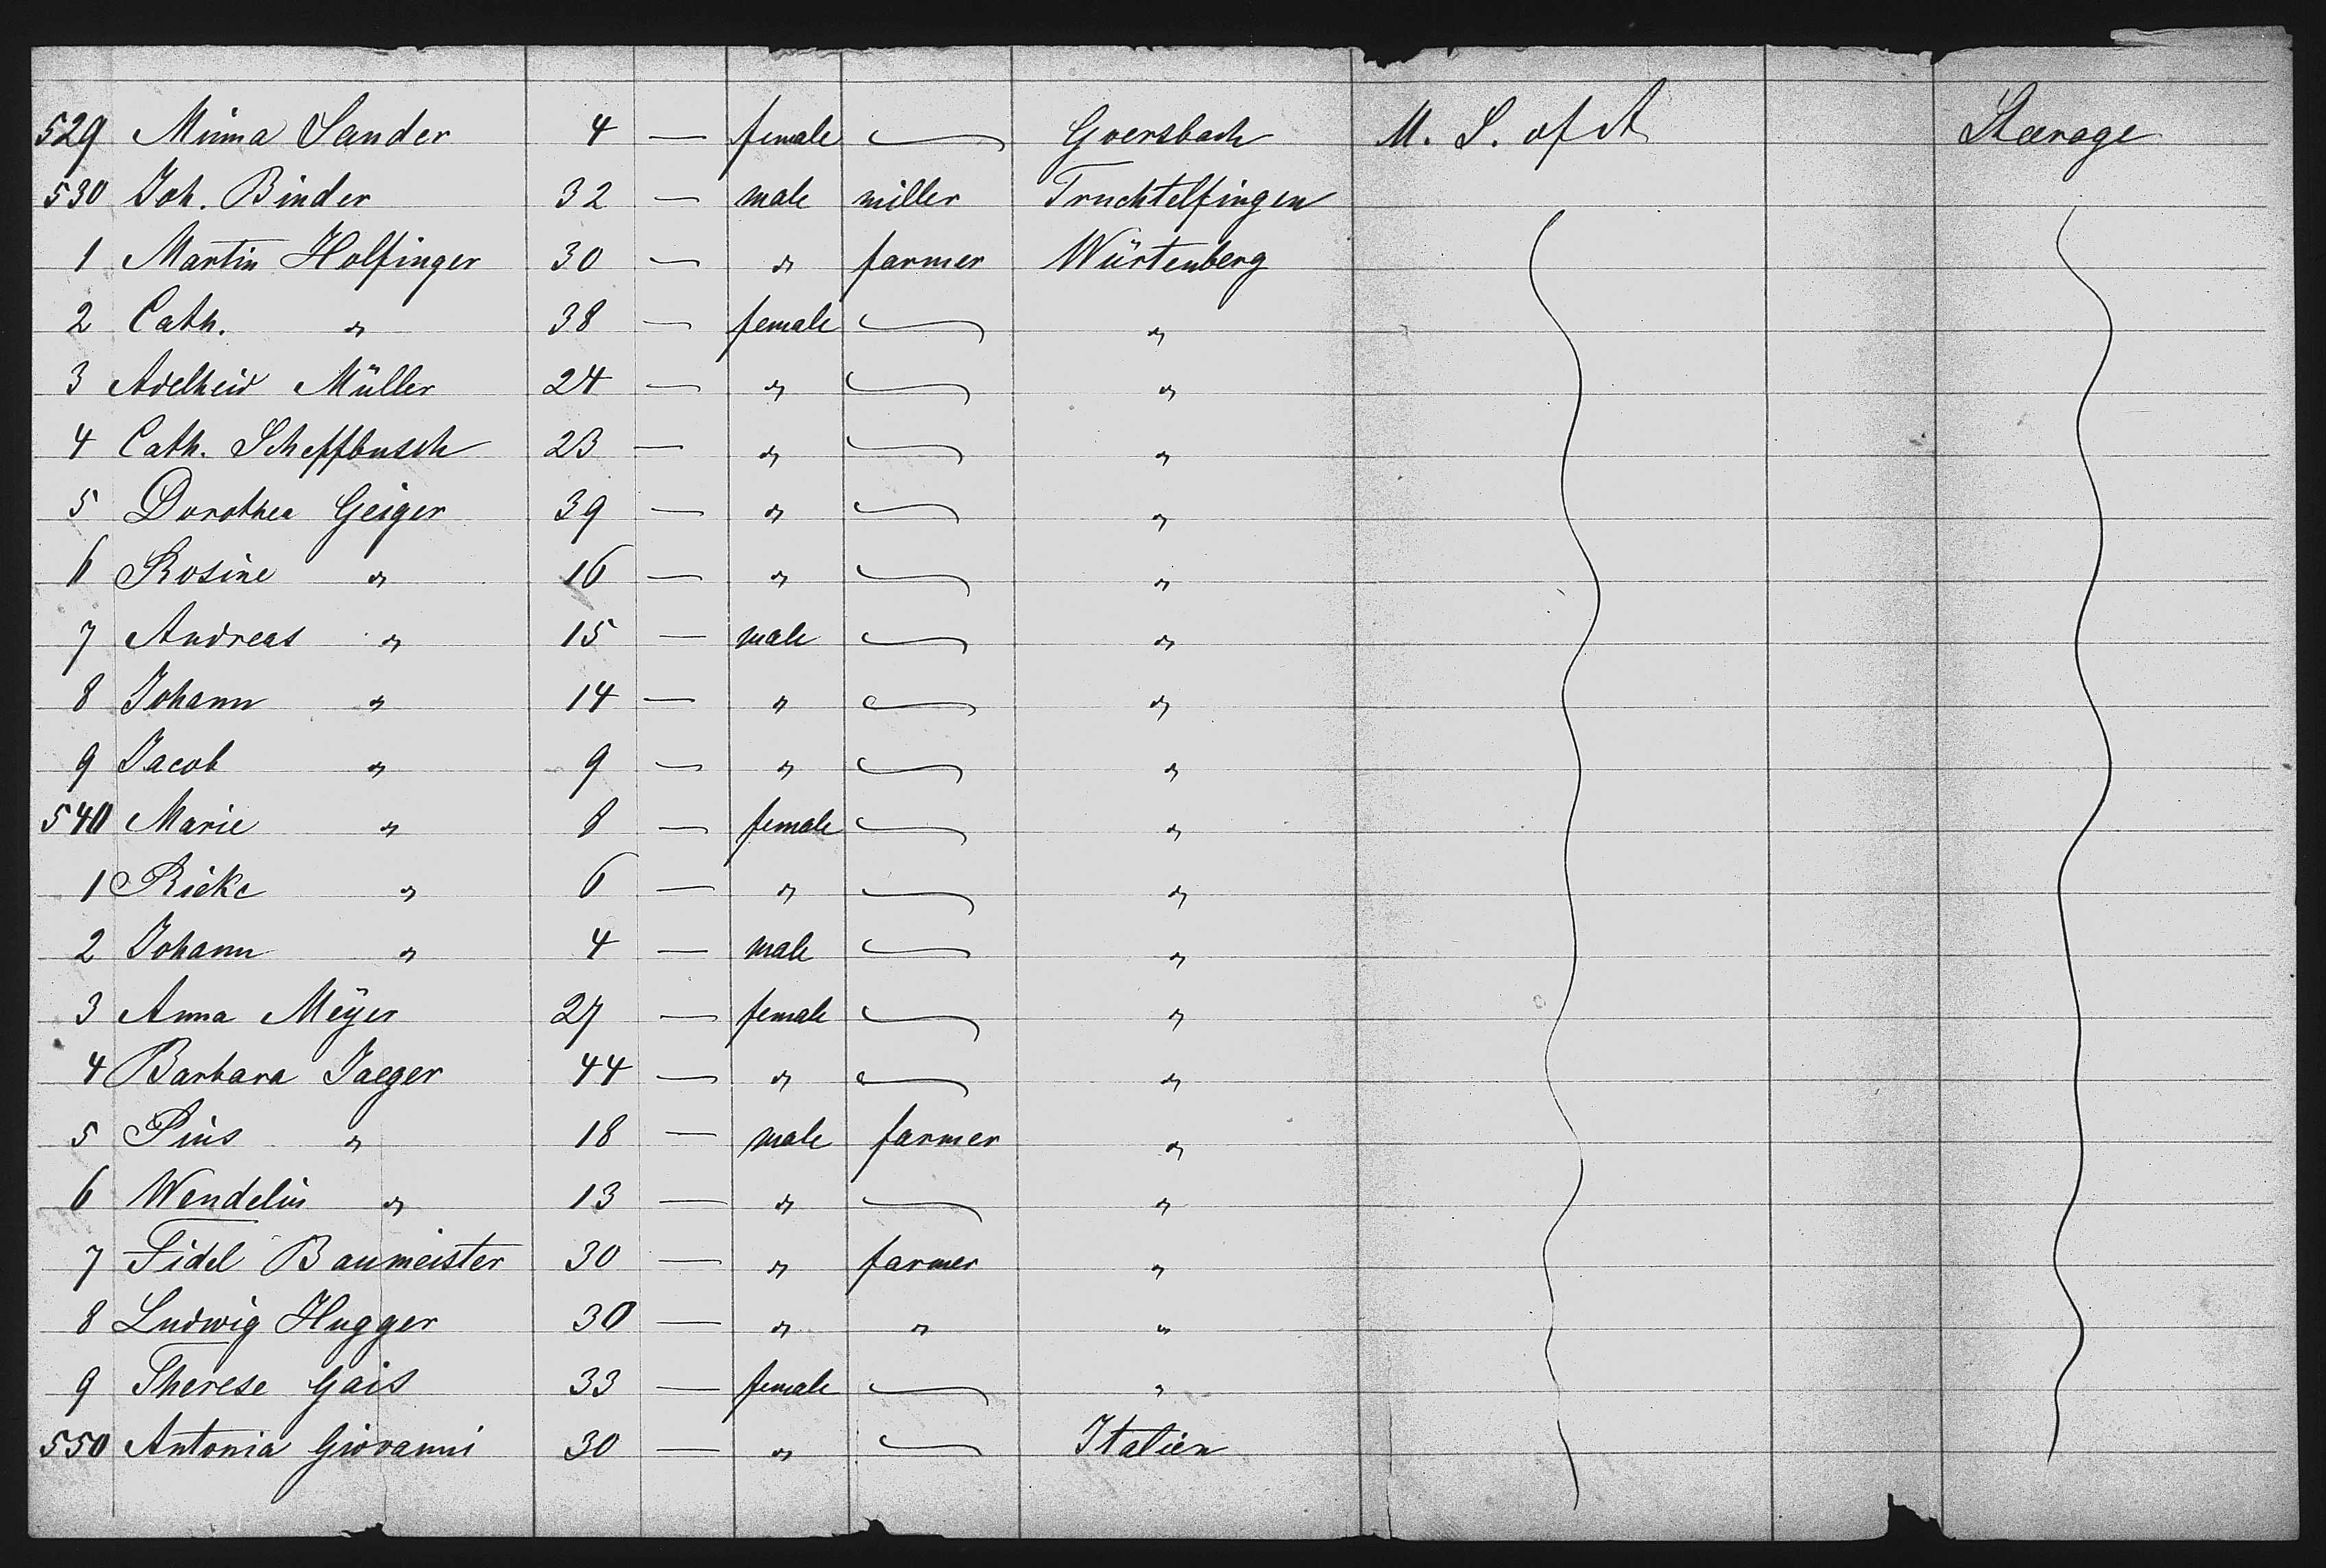 529 Minna Sander 4 — female — Goersbach U. S. of A Stærage
530 Joh. Binder 32 — male miller Truchtelfingen
1 Martin Holfinger 30 — " farmer Würtenberg
2 Cath. " 38 — female — "
3 Adelheid Müller 24 — " — "
4 Cath. Scheffbusch 23 — " — "
5 Dorothea Geiger 39 — " — "
6 Rosine " 16 — " — "
7 Andreas " 15 — male — "
8 Johann " 14 — " — "
9 Jacob " 9 — " — "
540 Marie " 8 — female — "
1 Rieke " 6 — " — "
2 Johann " 4 — male — "
3 Anna Meÿer 27 — female — "
4 Barbara Jaeger 44 — " — "
5 Pius " 18 — male farmer "
6 Wendelin " 13 — " — "
7 Fidel Baumeister 30 — " farmer "
8 Ludwig Hugger 30 — " " "
9 Therese Gais 33 — female — "
550 Antonia Giovanni 30 — " — Italien